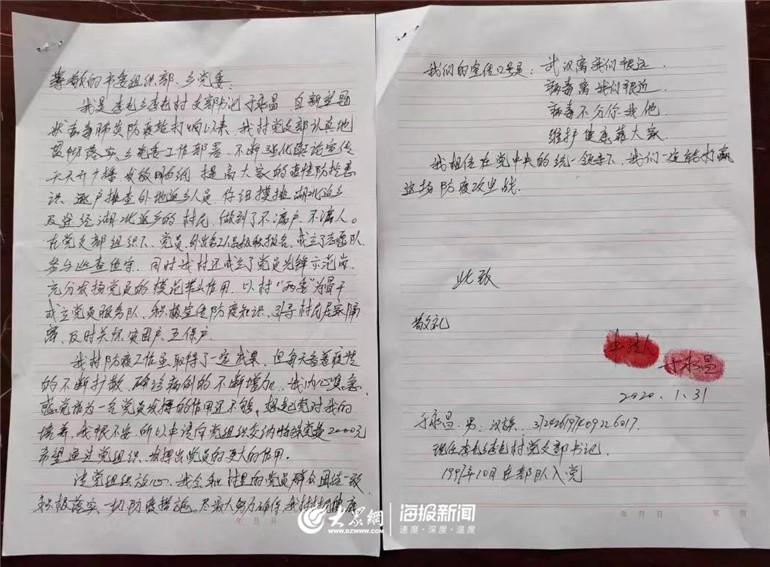 尊敬的市委组织部、乡党委：
我是李屯乡李屯村支部书记于永昌，自新型冠
状病毒肺炎防疫战打响以来，我村党支部认真地
贯彻落实乡党委工作部署，不断强化舆论宣传
天天开广播、发放明白纸，提高大家的疫情防控意
识。逐户排查外地返乡人员，仔细摸排湖北返乡
及途经湖北返乡的村民，做到了不漏户、不漏人。
在党支部组织下，党员、外出务工人员积极报名，成立了志愿队
参与巡查值守，同时我村还成立了党员先锋示范岗，
充分发扬党员的模范带头作用，以村"两委"为骨干
成立党员服务队，积极宣传防疫知识、引导村民居家隔
离，及时关怀贫困户、五保户。
我村防疫工作虽取得了一定成果，但每天看着疫情
的不断扩散，确诊病例的不断增加，我内心焦急，
感觉作为一名党员发挥的作用还不够，想起党对我的
培养，我很不安，所以申请向党组织交纳特殊党费2000元
希望通过党组织，发挥出党员的更大的作用。
请党组织放心，我会和村里的党员群众团结一致
积极落实一切防疫措施，尽最大努力确保我村村民健康
年 月 日
我们的宣传口号是：武汉离我们很远
病毒离我们很近
病毒不分你我他
维护健康靠大家
我相信在党中央的统一领导下，我们一定能打赢
这场防疫攻坚战。
此致
敬礼
于永昌
2020.1.31
于永昌，男，汉族，
现任李屯乡李屯村党支部书记。
1991年10月在部队入党
年 月 日 第 页
大众网 WWW.DZWWW.COM 海报新闻
速度·深度·温度